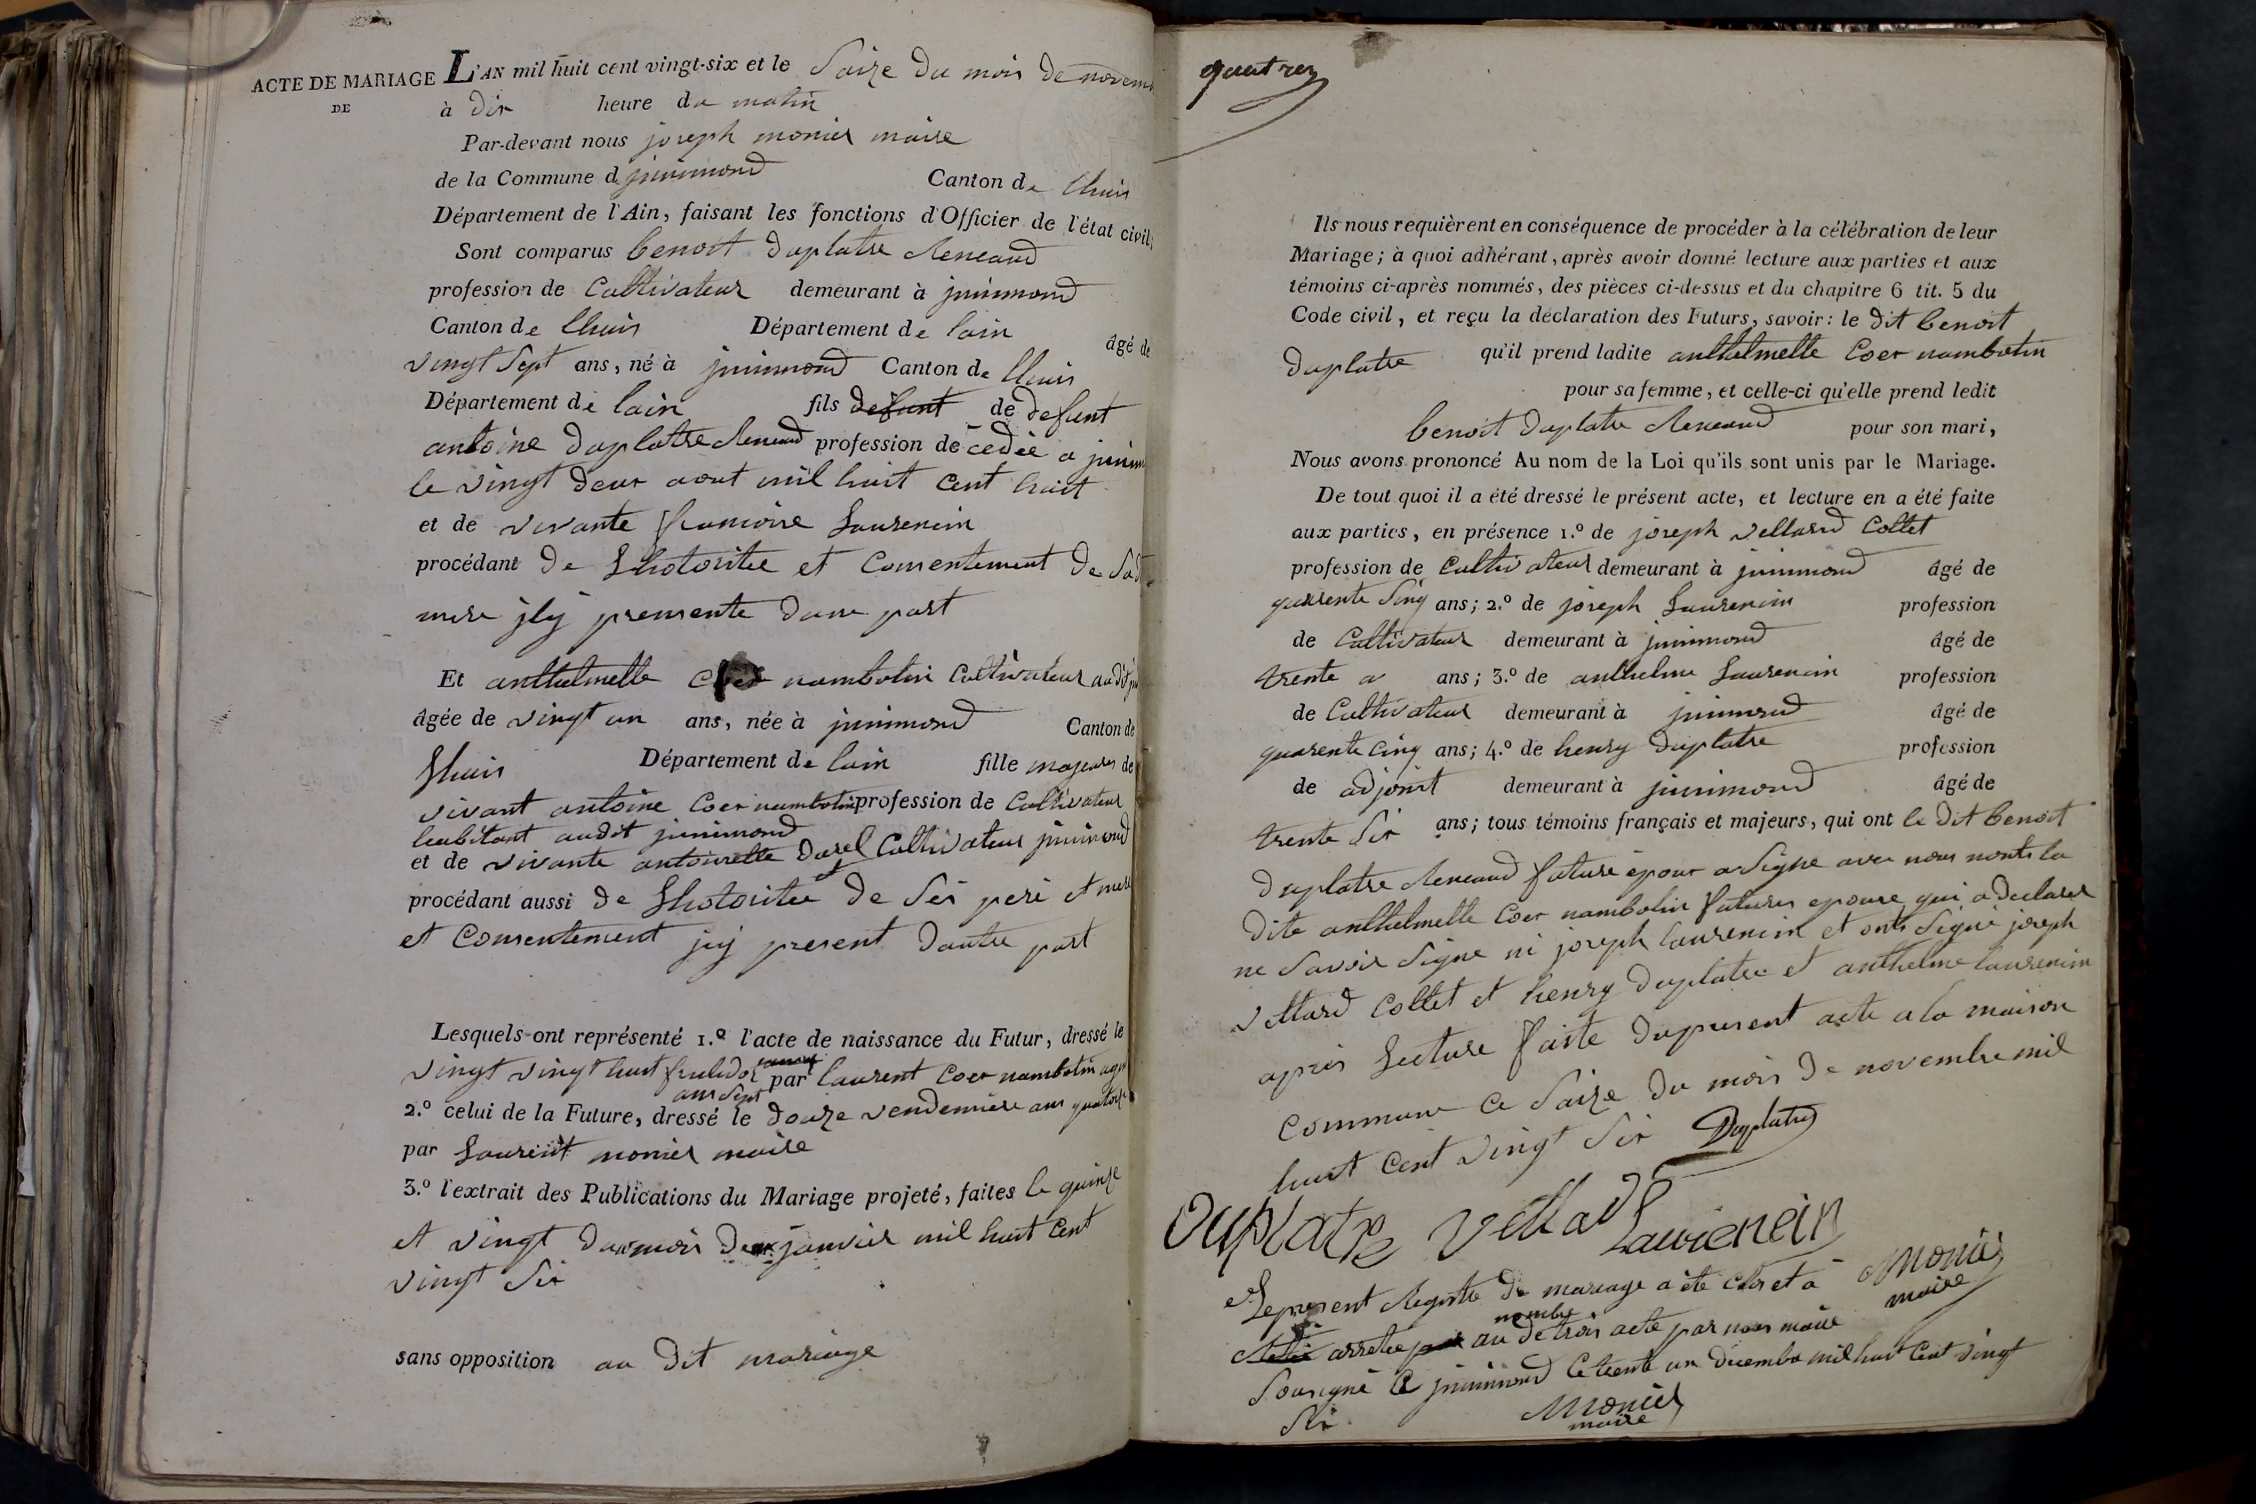 ACTE DE MARIAGE
DE
L'AN mil huit cent vingt-six et le Saize du mois de novem
à dix heure du matin
Par-devant nous joseph monier maire
de la Commune de jninimond Canton de lhuis
Département de l'Ain, faisant les fonctions d'Officier de l'état civil;
Sont comparus benoit Duplatre Reneaud
profession de Cultivateur demeurant à jninimond
Canton de lhuis Département de lain âgé de
vingt Sept ans, né à jninimond Canton de lhuis
Département de lain fils defunt de defunt
antoine Duplatre Reneaud profession de cedée a jninim
le vingt deux aout mil huit Cent huit
et de vivante francoise Laurencin
procédant De Lhotoritee et Consentement De Sad
mere jly presente Dune part
Et anthelmette Coer nambotin Cultivateur audit
âgée de vingt un ans, née à jninimond Canton de
Lhuis Département de lain fille majeure de
vivant antoine Coer nambotin profession de Cultivateur
habitant audit jninimond
et de vivante antoinette Cultivateur jninimond
procédant aussi de Lhotoritee De Ses pere et mere
et Consentement jcy present Dautre part
Lesquels ont représenté 1.º l'acte de naissance du Futur, dressé le
vingt vingt huit par laurent Coer nambotin
ans Sept
2.º celui de la Future, dressé le Douze vendemiere ans quatorze
par Laurent monier maire
3.º l'extrait des Publications du Mariage projeté, faites le quinze
et vingt Du mois De janvier mil huit Cent
vingt Six
sans opposition au Dit mariage
Ils nous requièrent en conséquence de procéder à la célébration de leur
Mariage; à quoi adhérant, après avoir donné lecture aux parties et aux
témoins ci-après nommés, des pièces ci-dessus et du chapitre 6 tit. 5 du
Code civil, et reçu la déclaration des Futurs, savoir: le Dit benoit
Duplatre qu'il prend ladite anthelmette Coer nambotin
pour sa femme, et celle-ci qu'elle prend ledit
benoit Duplatre Reneaud pour son mari,
Nous avons prononcé Au nom de la Loi qu'ils sont unis par le Mariage.
De tout quoi il a été dressé le présent acte, et lecture en a été faite
aux parties, en présence 1.º de joseph vettard Collet
profession de Cultivateur demeurant à jninimond âgé de
quarente Sinq ans; 2.º de joseph Laurencin profession
de Cultivateur demeurant à jninimond âgé de
trente ans; 3.º de anthelme Laurencin profession
de Cultivateur demeurant à jninimond âgé de
quarente Cinq ans; 4.º de henry Duplatre profession
de adjoint demeurant à jninimond âgé de
trente Six ans; tous témoins français et majeurs, qui ont le Dit benoit
Duplatre Reneaud future epoux a Signe avec nous nonts la
Dite anthelmette Coer nambotin future epouse qui a Declarer
ne Savoir Signe ni joseph laurencin et onts Signe joseph
vettard Collet et henry Duplatre et anthelme laurencin
apres Lecture faite Dupresent acte a la maison
Commune Ce Saize Du mois De novembre mil
huit Cent vingt Six Duplatre
Duplatre vettard
Laurencin
Monier
maire
Le present Registre De mariage a ete Clos et a
arretee au nombre De trois acte par nous maire
Sousigné a jninimond Ce trente un Decembre mil huit Cent vingt
Six
Monier
maire